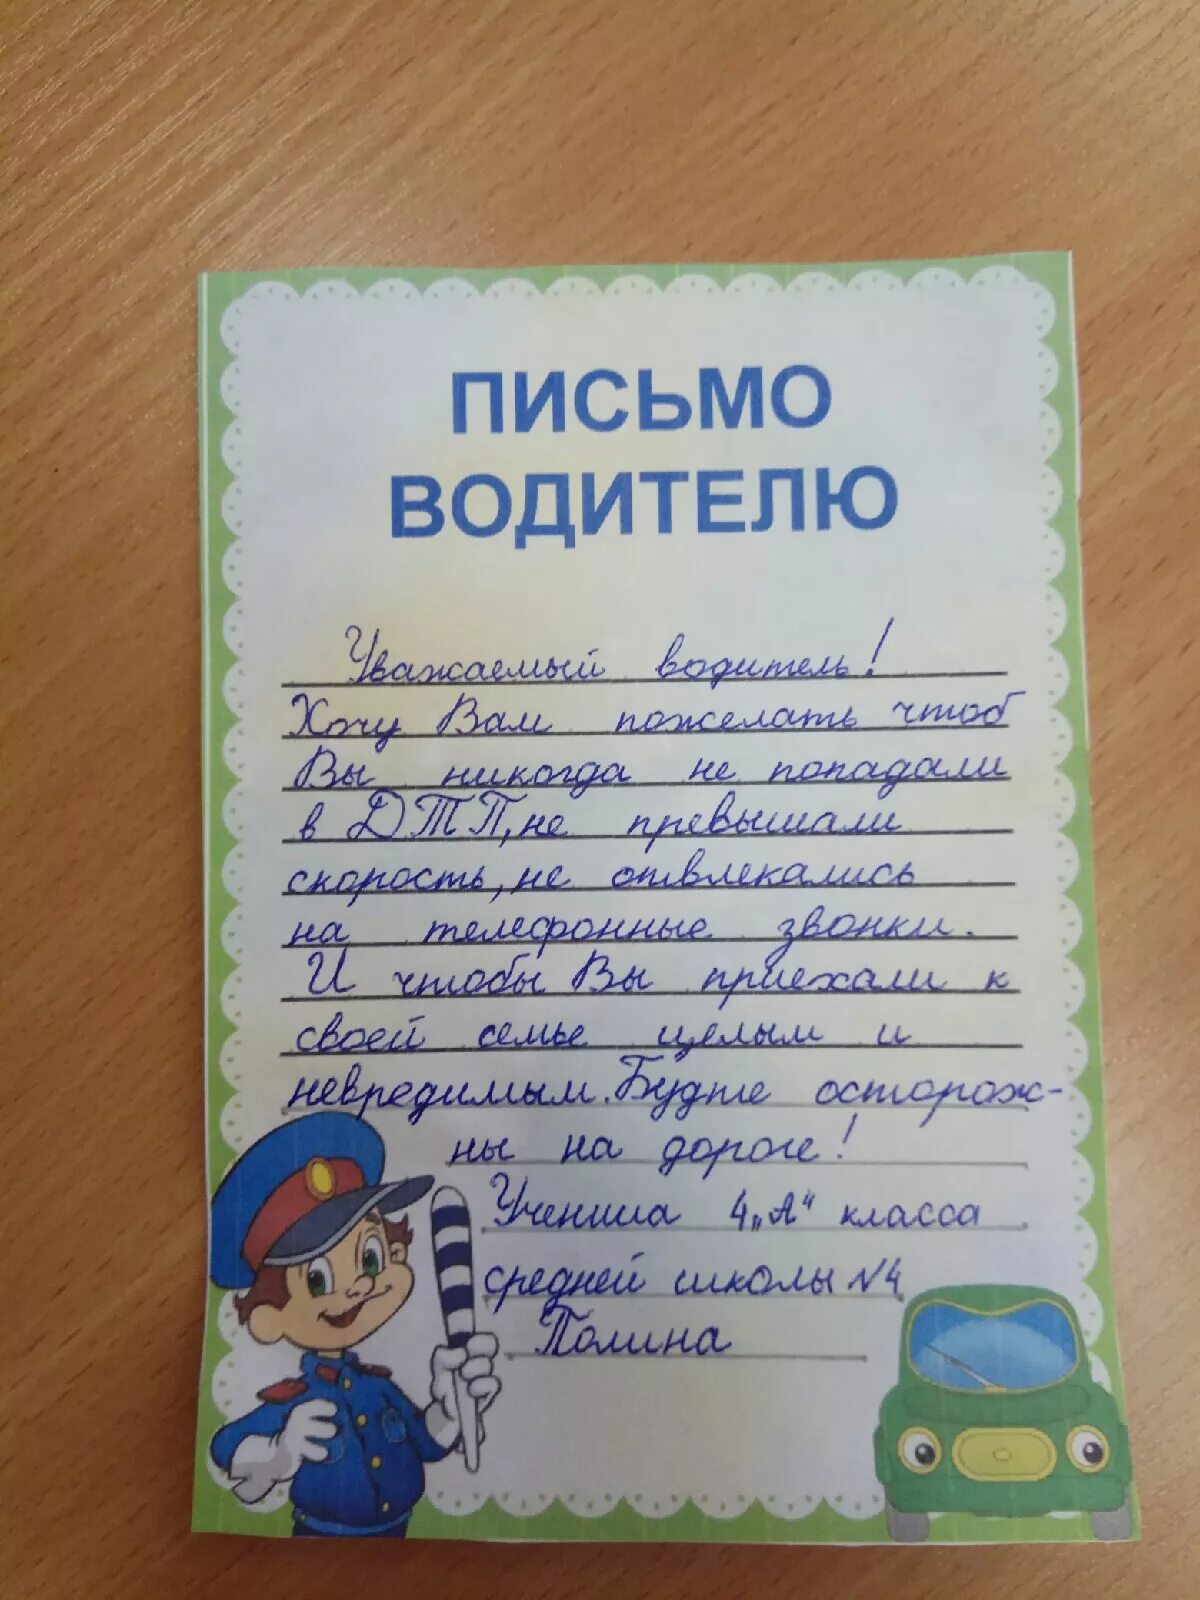 ПИСЬМО
ВОДИТЕЛЮ
Уважаемый водитель!
Хочу Вам пожелать чтоб
Вы никогда не попадали
в ДТП, не превышали
скорость, не отвлекались
на телефонные звонки.
И чтобы Вы приехали к
своей семье целым и
невредимым. Будте осторож-
ны на дороге!
Ученица 4 „А“ класса
средней школы N4
Полина